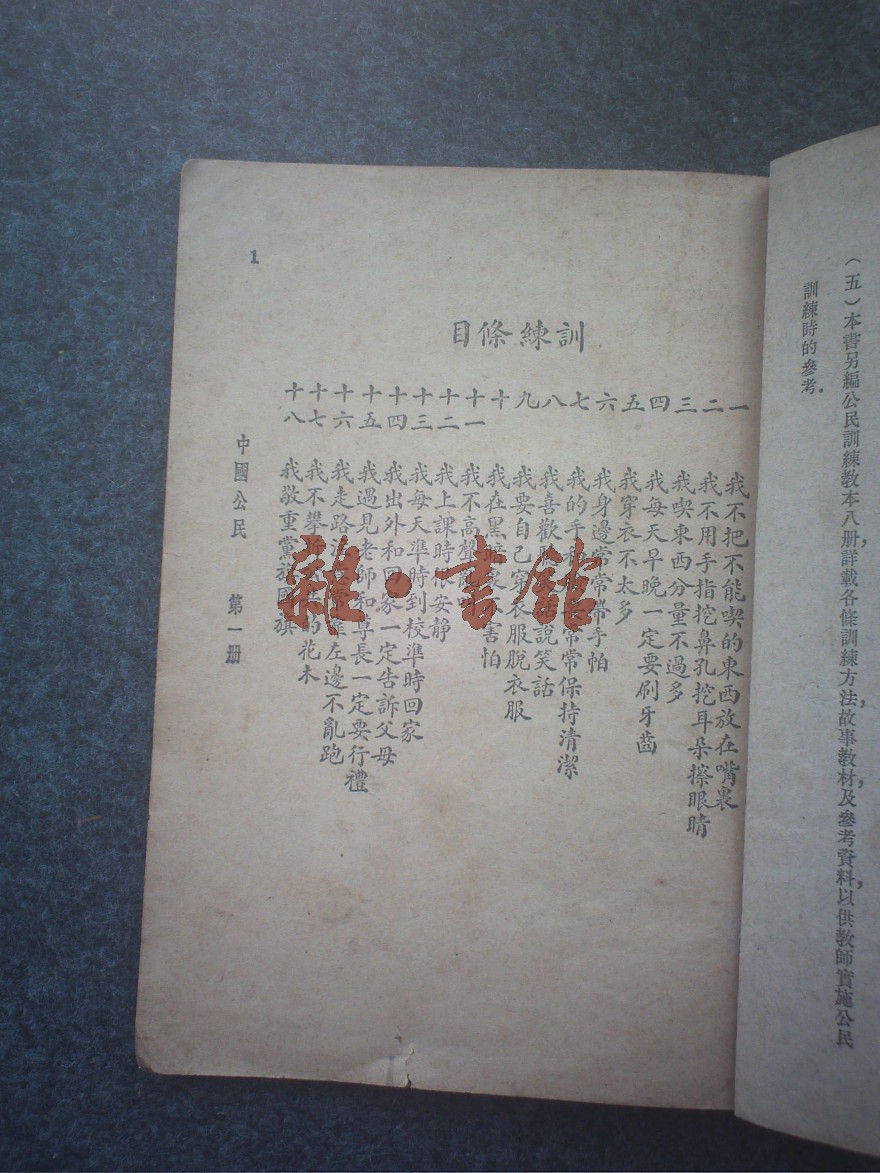 （五）本書另編公民訓練教本八册，詳載各條訓練方法，故事教材，及參考資料，以供教師實施公民
訓練時的參考．
訓練條目
一 我不把不能喫的東西放在嘴裏
二 我不用手指挖鼻孔挖耳朵擦眼睛
三 我喫東西分量不過多
四 我每天早晚一定要刷牙齒
五 我穿衣不太多
六 我身邊常常帶手帕
七 我的手和常常保持清潔
八 我喜歡話說笑話
九 我要自己穿衣服脫衣服
十 我在黑暗害怕
十一 我不高聲亂
十二 我上課時安靜
十三 我每天準時到校準時回家
十四 我出外和回家一定告訴父母
十五 我遇見老師和尊長一定要行禮
十六 我走路靠左邊不亂跑
十七 我不攀折的花木
十八 我敬重黨旗國旗
中國公民 第一册
1
雜·書館